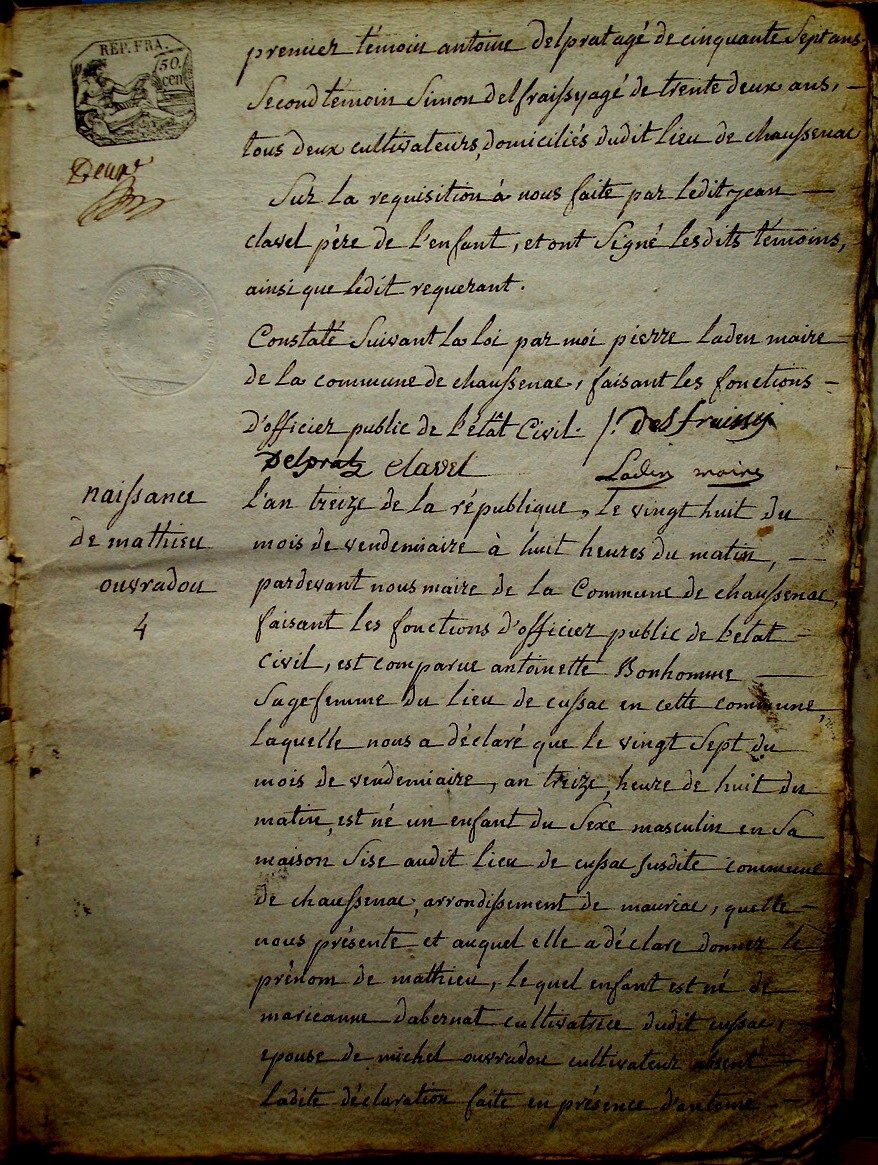 REP. FRA.
50.
cen
premier témoin antoine delprat agé de cinquante Sept ans.
Second témoin Simon delfraissy agé de trente deux ans, —
tous deux cultivateurs, domiciliés dudit lieu de chaussenac
Sur la requisition à nous faite par ledit jean —
clavel père de l'enfant, et ont Signé lesdits témoins,
ainsi que ledit requerant.
Constaté Suivant la loi par moi pierre laden maire
de la commune de chaussenac, faisant les fonctions —
d'officier public de l'etât Civil. /. delfraissy
Delprat clavel Laden maire
naissance
de mathieu
ouvradou
4
l'an treize de la république, le vingt huit du
mois de vendemiaire à huit heures du matin, —
pardevant nous maire de la Commune de chaussenac,
faisant les fonctions d'officier public de l'etat —
Civil, est comparue antoinette Bonhomme —
Sagefemme du lieu de cussac en cette commune,
laquelle nous a déclaré que le vingt Sept du
mois de vendemiaire, an treize, heure de huit du
matin, est né un enfant du Sexe masculin en Sa
maison Sise audit lieu de cussac susdite commune
de chaussenac, arrondissement de mauriac, quelle —
nous présente et auquel elle a déclaré donner le
prénom de mathieu, lequel enfant est né de —
marieanne dabernat cultivatrice dudit cussac, —
epouse de michel ouvradou cultivateur absent —
ladite déclaration faite en présence d'antoine —